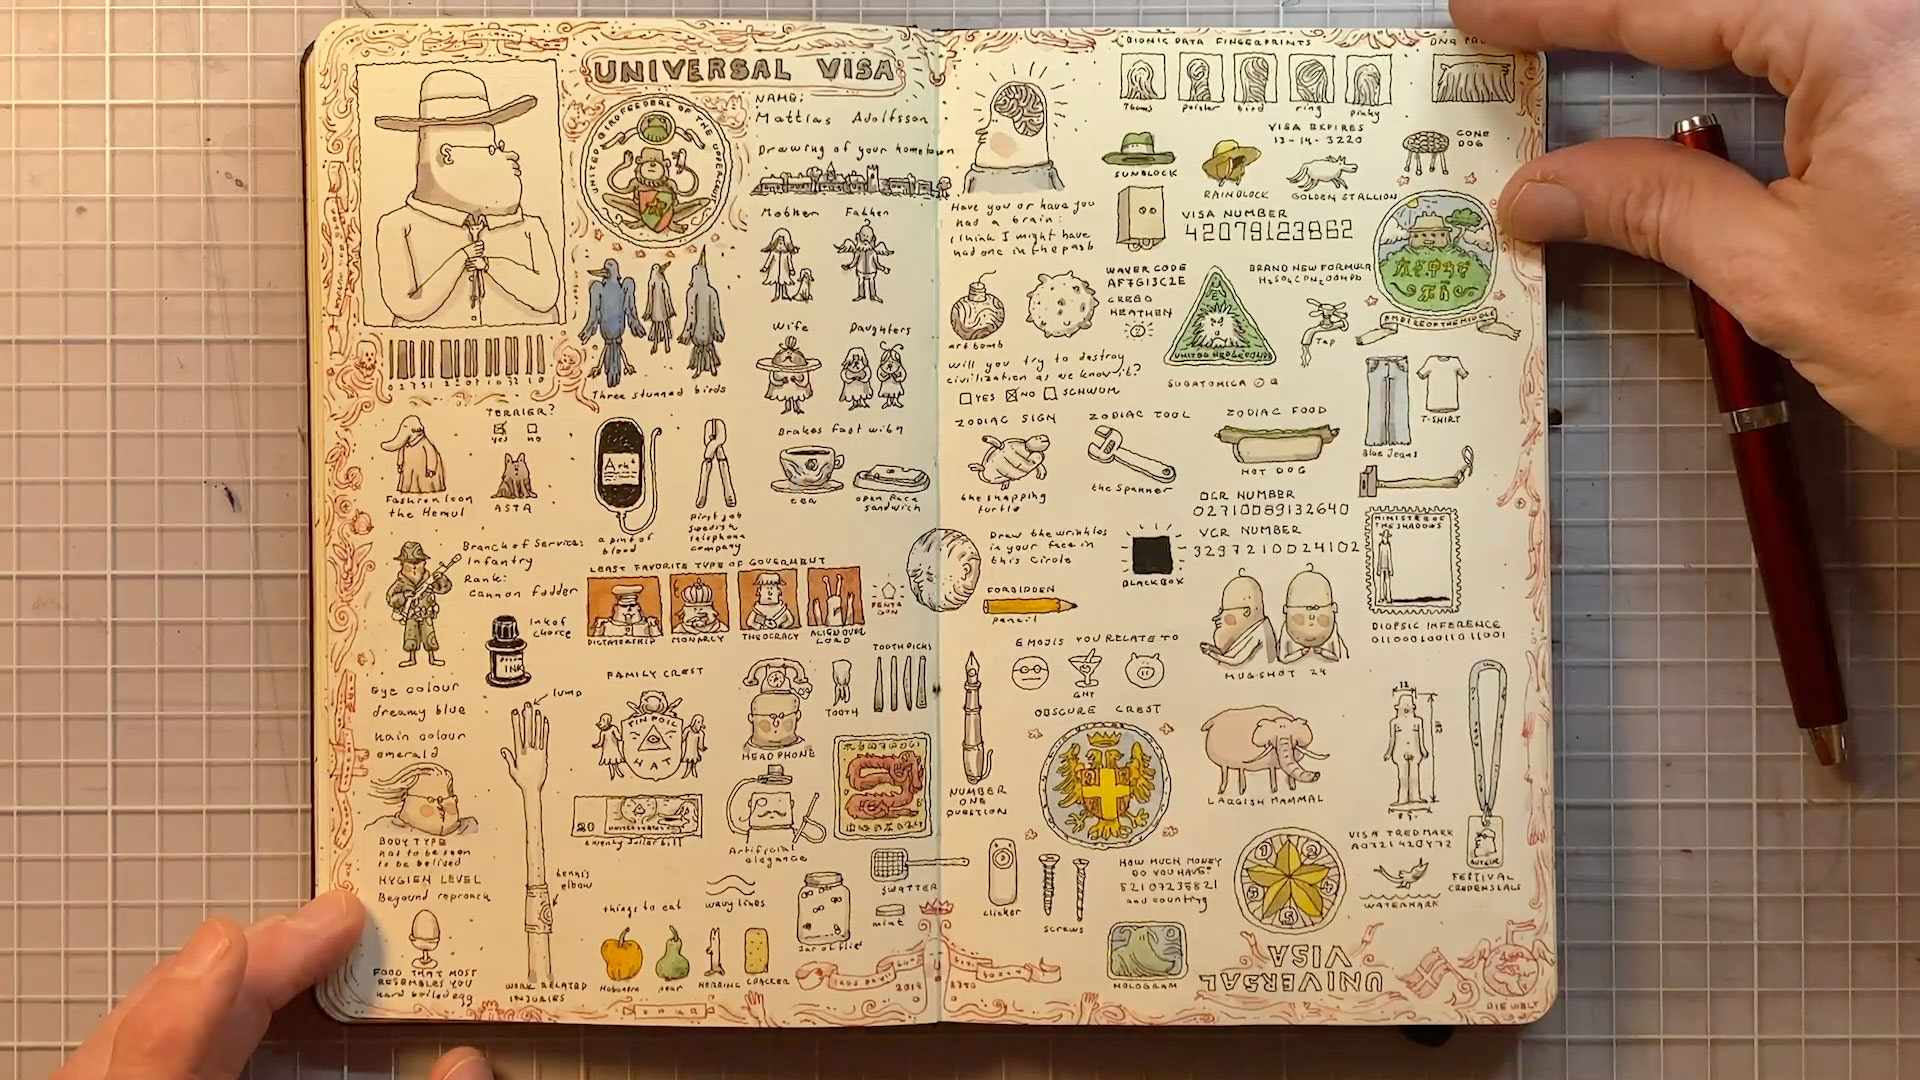 UNIVERSAL VISA
UNITED BIRDFEEDERS OF THE
NAME:
Mattias Adolfsson
Drawing of your hometown
Mother
Father
Wife
Daughters
Three stunned birds
TERRIER?
yes
no
Fashion Icon
the Hemul
ASTA
a pint of
blood
First job
swedish
telephone
company
Brakes fast with
tea
open face
sandwich
Branch of Service:
Infantry
Rank:
cannon fodder
Ink of
choice
INK
LEAST FAVORITE TYPE OF GOVERMENT
DICTATORSHIP
MONARCY
THEOCRACY
ALIEN OVER
LORD
PENTA
GON
Eye colour
dreamy blue
hair colour
emerald
lump
FAMILY CREST
TIN FOIL
HAT
HEADPHONE
TOOTH
TOOTHPICKS
BODY TYPE
has to be seen
to be belived
HYGIEN LEVEL
Beyound reproach
tennis
elbow
20
twenty dollar bill
Artificial
elegance
things to eat
wavy lines
Jar of flies
SWATTER
mint
FOOD THAT MOST
RESEMBLES YOU
hard boiled egg
WORK RELATED
INJURIES
Habanero
pear
HERRING
CRACKER
BIONIC DATA FINGERPRINTS
Thumb
pointer
bird
ring
pinky
SUNBLOCK
RAINBLOCK
VISA EXPIRES
13-14-3220
GOLDEN STALLION
CONE
DOG
Have you or have you
had a brain:
I think I might have
had one in the past
VISA NUMBER
42079123862
art bomb
WAVER CODE
AF7G13C2E
CREED
HEATHEN
BRAND NEW FORMULA
Tap
EMPIRE OF THE MIDDLE
will you try to destroy
civilization as we know it?
YES
NO
SCHWUM
SUBATOMICA
T-SHIRT
Blue Jeans
ZODIAC SIGN
ZODIAC TOOL
ZODIAC FOOD
the snapping
turtle
the spanner
HOT DOG
OCR NUMBER
02710089132640
VCR NUMBER
3297210024102
Draw the wrinkles
in your face in
this Circle
BLACK BOX
MINISTER OF
THE SHADOWS
FORBIDDEN
pencil
DIOPSIC INFERENCE
EMOJIS YOU RELATE TO
GNT
MUGSHOT 24
OBSCURE CREST
NUMBER
ONE
QUESTION
LARGISH MAMMAL
clicker
screws
HOW MUCH MONEY
DO YOU HAVE?
and counting
VISA TREDMARK
A0721420472
WATERMARK
AUTEUR
FESTIVAL
CREDENSIALS
HOLOGRAM
UNIVERSAL
VISA
DIE WELT